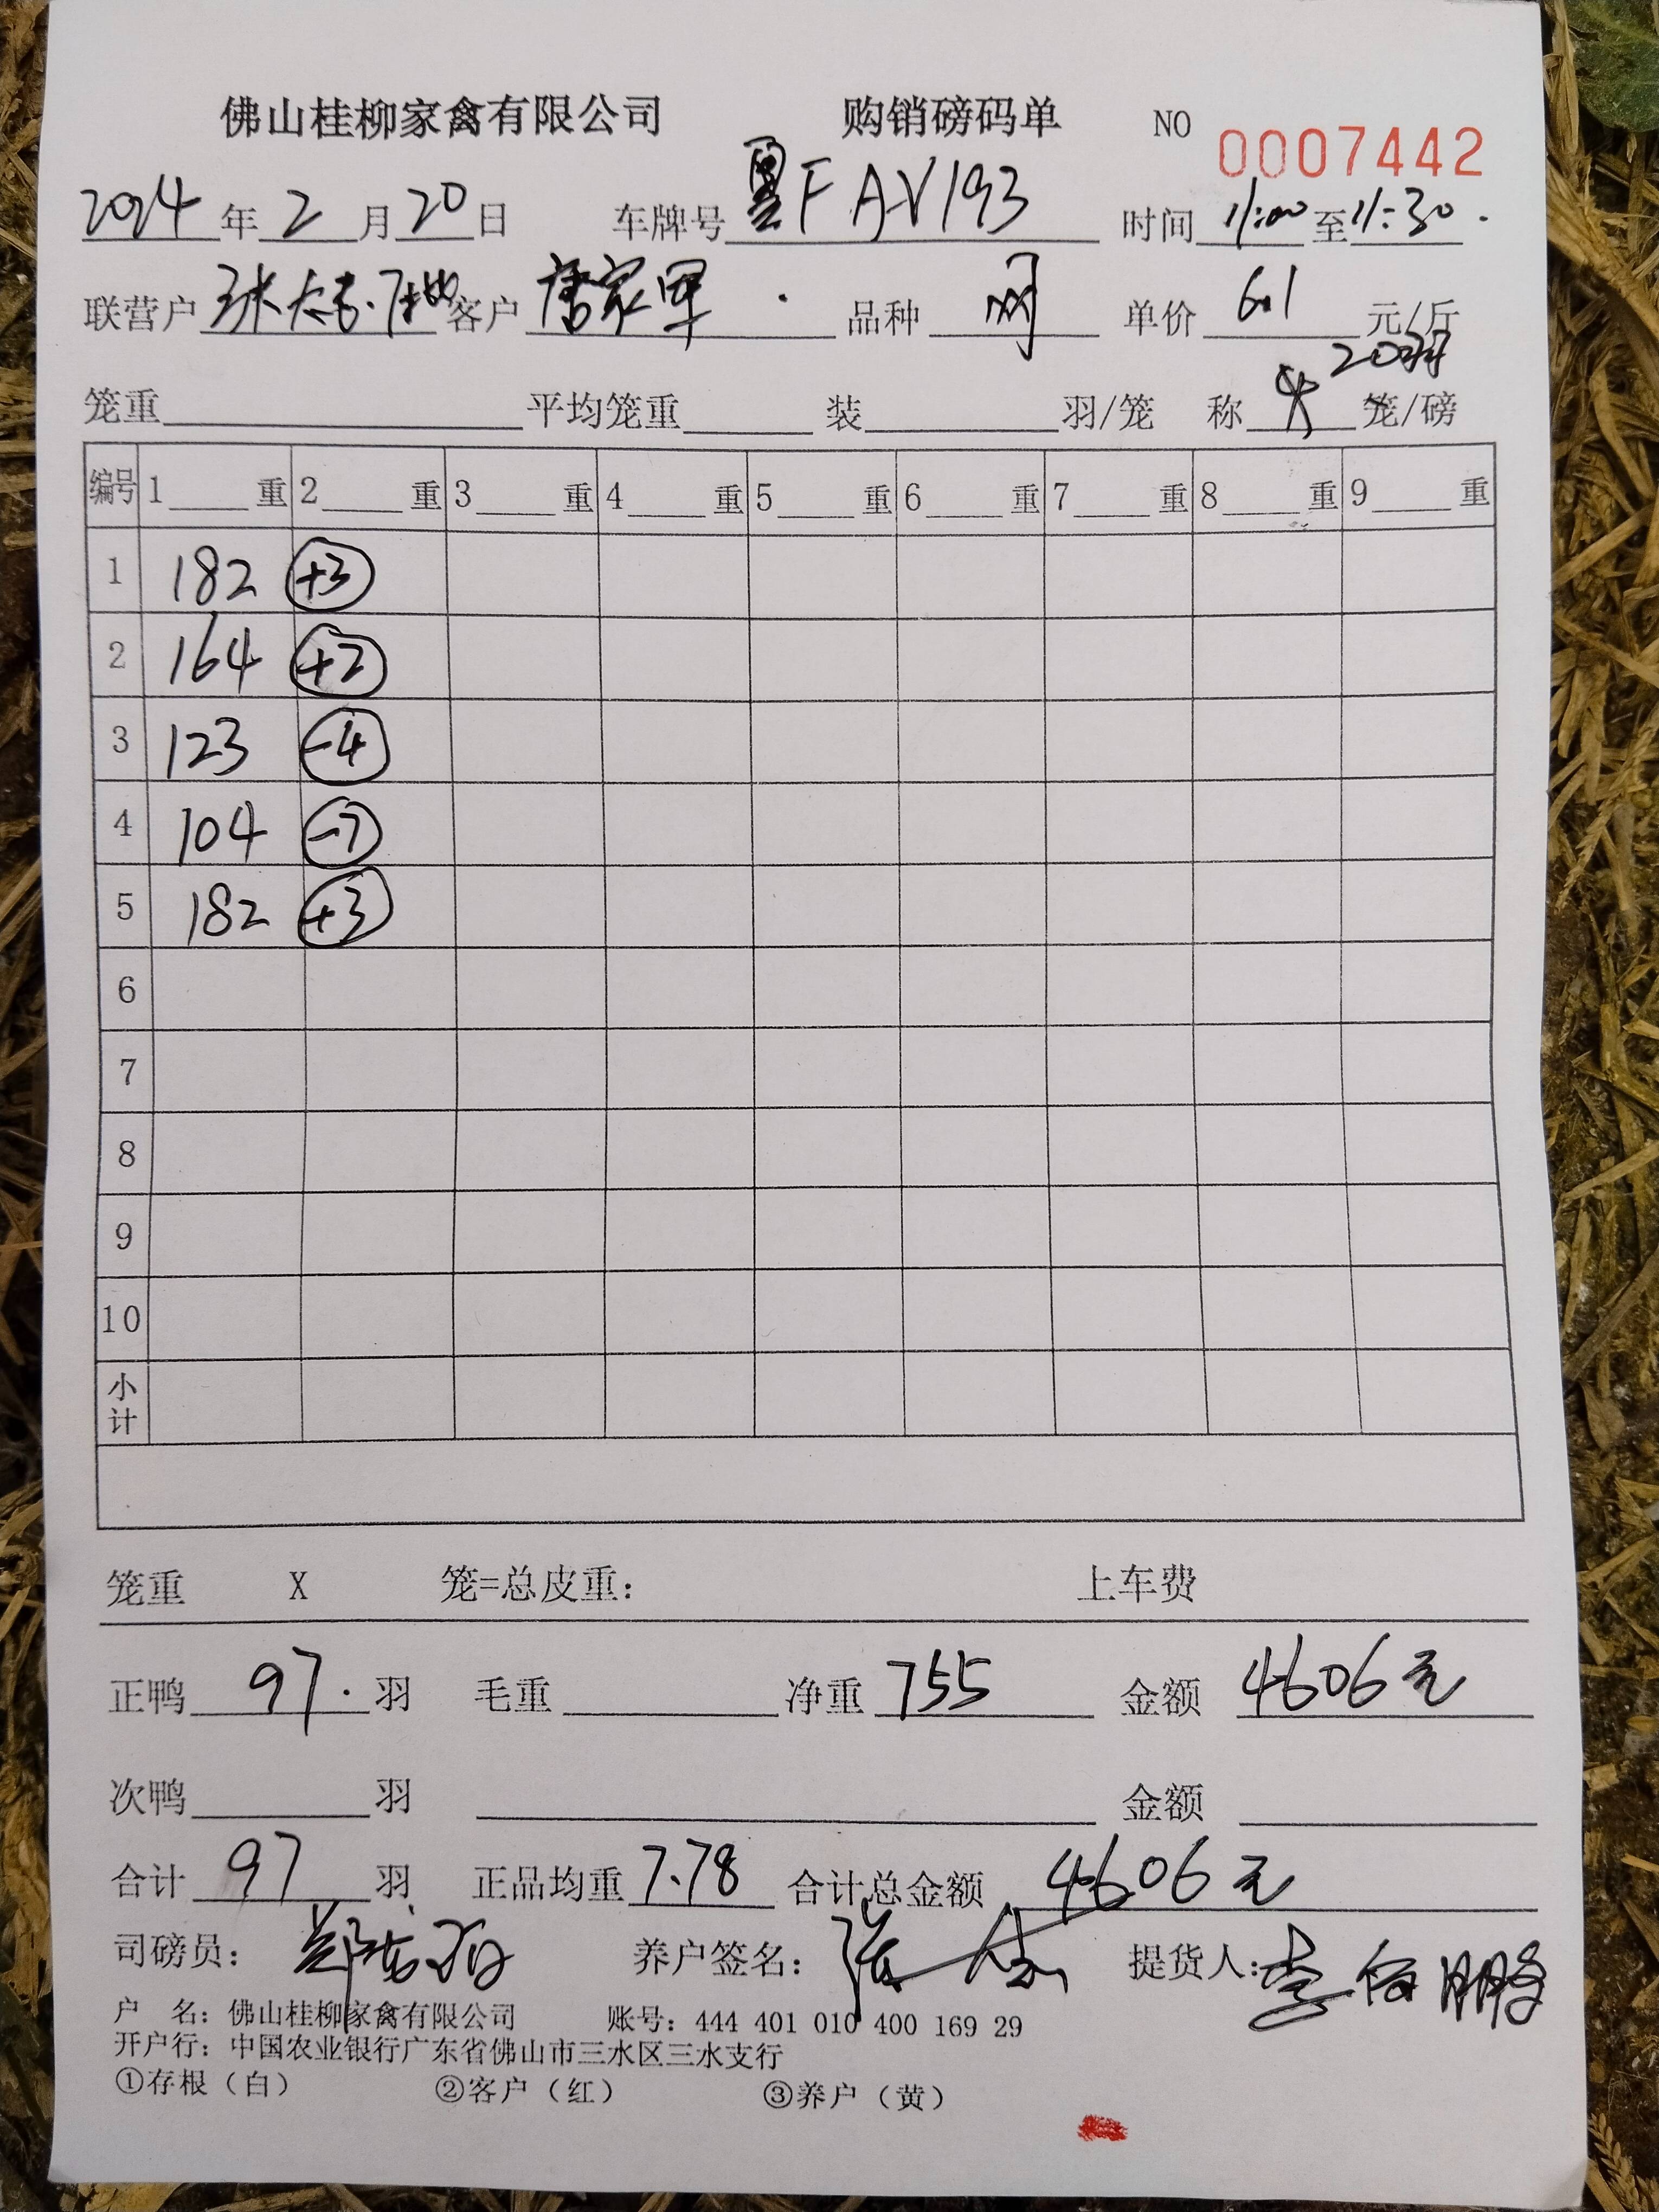 佛山桂柳家禽有限公司 购销磅码单 NO 0007442
2024年2月20日 车牌号 粤F AV193 时间 11:00 至 11:30.
联营户 客户 唐家军 品种 单价 6.1 元/斤
20羽
笼重 平均笼重 装 羽/笼 称 笼/磅
编号 1 重 2 重 3 重 4 重 5 重 6 重 7 重 8 重 9 重
1 182 +3
2 164 +2
3 123 -4
4 104 -7
5 182 +3
6
7
8
9
10
小计
笼重 X 笼=总皮重: 上车费
正鸭 97. 羽 毛重 净重 755 金额 4606元
次鸭 羽 金额
合计 97 羽 正品均重 7.78 合计总金额 4606元
司磅员: 养户签名: 提货人:
户 名: 佛山桂柳家禽有限公司 账号: 444 401 010 400 169 29
开户行: 中国农业银行广东省佛山市三水区三水支行
①存根（白） ②客户（红） ③养户（黄）